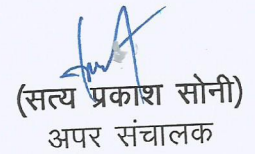 (सत्य प्रकाश सोनी)
अपर संचालक